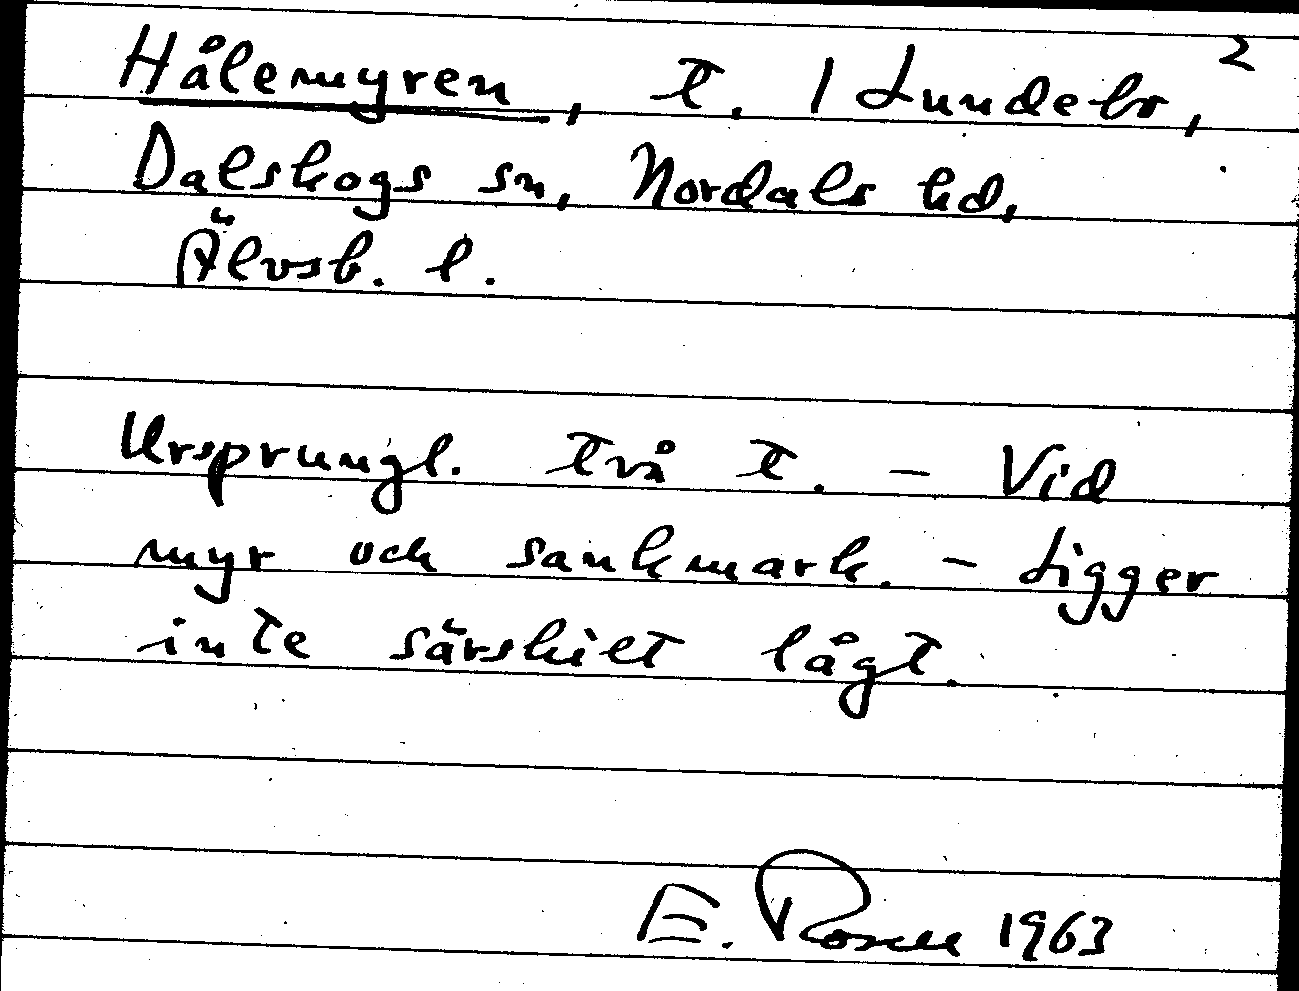 Hålemyren, t. 1 Lundebo, 2
Dalskogs sn, Nordals hd,
Älvsb. l.
Ursprungl. två t. - Vid
myr och sankmark. - Ligger
inte särskilt lågt.
E. Rosell 1963